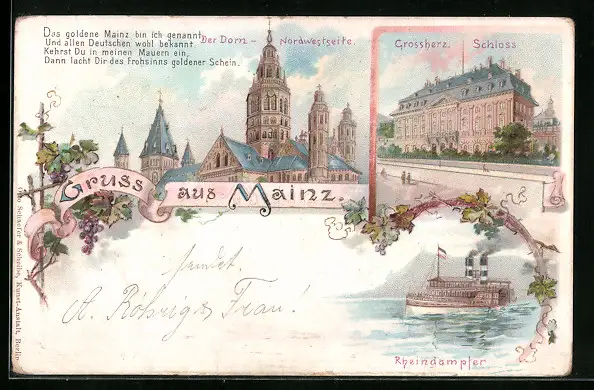 Das goldene Mainz bin ich genannt,
Und allen Deutschen wohl bekannt
Kehrst Du in meinen Mauern ein,
Dann lacht Dir des Frohsinns goldener Schein.
Der Dom - Nordwestseite.
Grossherz. Schloss
Gruss aus Mainz.
sendet
A. Röhrig & Frau!
Rheindampfer
Schaefer & Scheibe, Kunst-Anstalt, Berlin